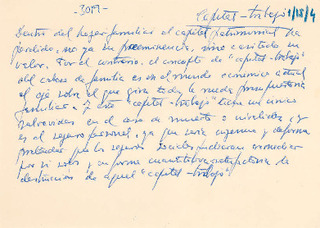 -3087-
Capital-trabajo 1/18/4
Dentro del hogar familiar el capital patrimonial ha
perdido, no ya su preeminencia, sino casi todo su
valor. Por el contrario, el concepto de "capital-trabajo"
del cabeza de familia es en el mundo económico actual
el eje sobre el que gira toda la rueda presupuestaria
familiar. Y este "capital-trabajo" tiene un único
salvavidas en el caso de muerte o invalidez, y
es el seguro personal, ya que sería ingenuo y deforme
pretender que los seguros sociales pudieran remediar
por sí solos, y en forma cuantitativa satisfactoria la
destrucción de aquel "capital-trabajo".